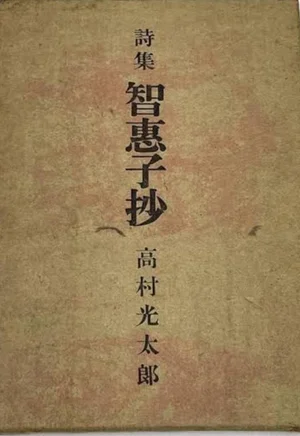 詩集
智惠子抄
高村光太郎